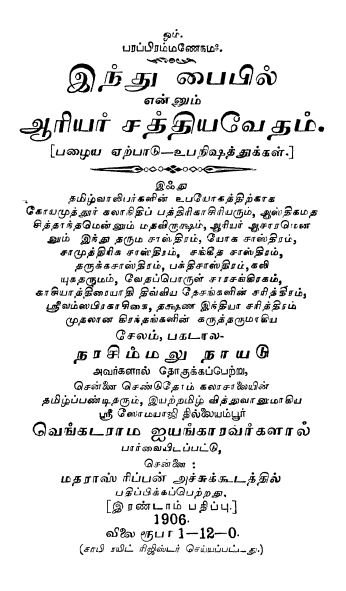 ஓம்.
பரப்பிரம்மணேநம:
இந்து பைபில்
என்னும்
ஆரியர் சத்தியவேதம்.
[பழைய ஏற்பாடு—உபநிஷத்துக்கள்.]
இஃது
தமிழ்வாலிபர்களின் உபயோகத்திற்காக
கோயமுத்தூர் கலாநிதிப் பத்திரிகாசிரியரும், ஆஸ்திகமத
சித்தாந்தமென்னும் மதவிருக்ஷம், ஆரியர் ஆசாரமென
னும் இந்து தரும சாஸ்திரம், யோக சாஸ்திரம்,
சாமுத்திரிக சாஸ்திரம், சங்கீத சாஸ்திரம்,
தருக்கசாஸ்திரம், பக்திசாஸ்திரம்,கலி
யுகதருமம், வேதப்பொருள் சாரசங்கிரகம்,
காசியாத்திரையாதி திவ்விய தேசங்களின் சரித்திரம்,
ஸ்ரீவம்ஸபிரகாசிகை, தக்ஷண இந்தியா சரித்திரம்
முதலான கிரந்தங்களின் கருத்தருமாகிய
சேலம், பகடால-
நரசிம்மலு நாயடு
அவர்களால் தொகுக்கப்பெற்று,
சென்னை செண்டுதோம் கலாசாலையின்
தமிழ்ப்பண்டிதரும், இயற்றமிழ் வித்துவானுமாகிய
ஸ்ரீ ஸோமயாஜி தில்லையம்பூர்
வெங்கடராம ஐயங்காரவர்களால்
பார்வையிடப்பட்டு,
சென்னை :
மதராஸ் ரிப்பன் அச்சுக்கூடத்தில்
பதிப்பிக்கப்பெற்றது.
[இரண்டாம் பதிப்பு.]
1906.
விலை ரூபா 1—12—0.
(காபி ரயிட் ரிஜிஸ்டர் செய்யப்பட்டது.)